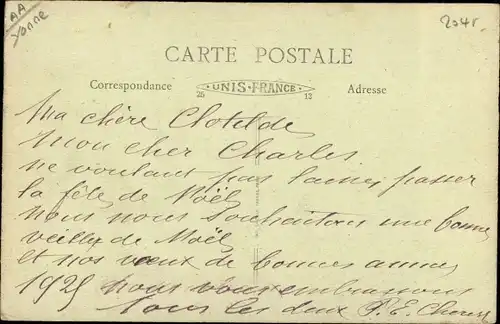 AA
Yonne
2041
CARTE POSTALE
Correspondance
UNIS-FRANCE
25 12
Adresse
Ma chère Clotilde
mon cher Charles
ne voulant pas laisser passer
la fête de Noël
nous vous souhaitons une bonne
veillée de Noël
et nos voeux de bonnes années
1925 nous vous embrassons
tous les deux P. E.